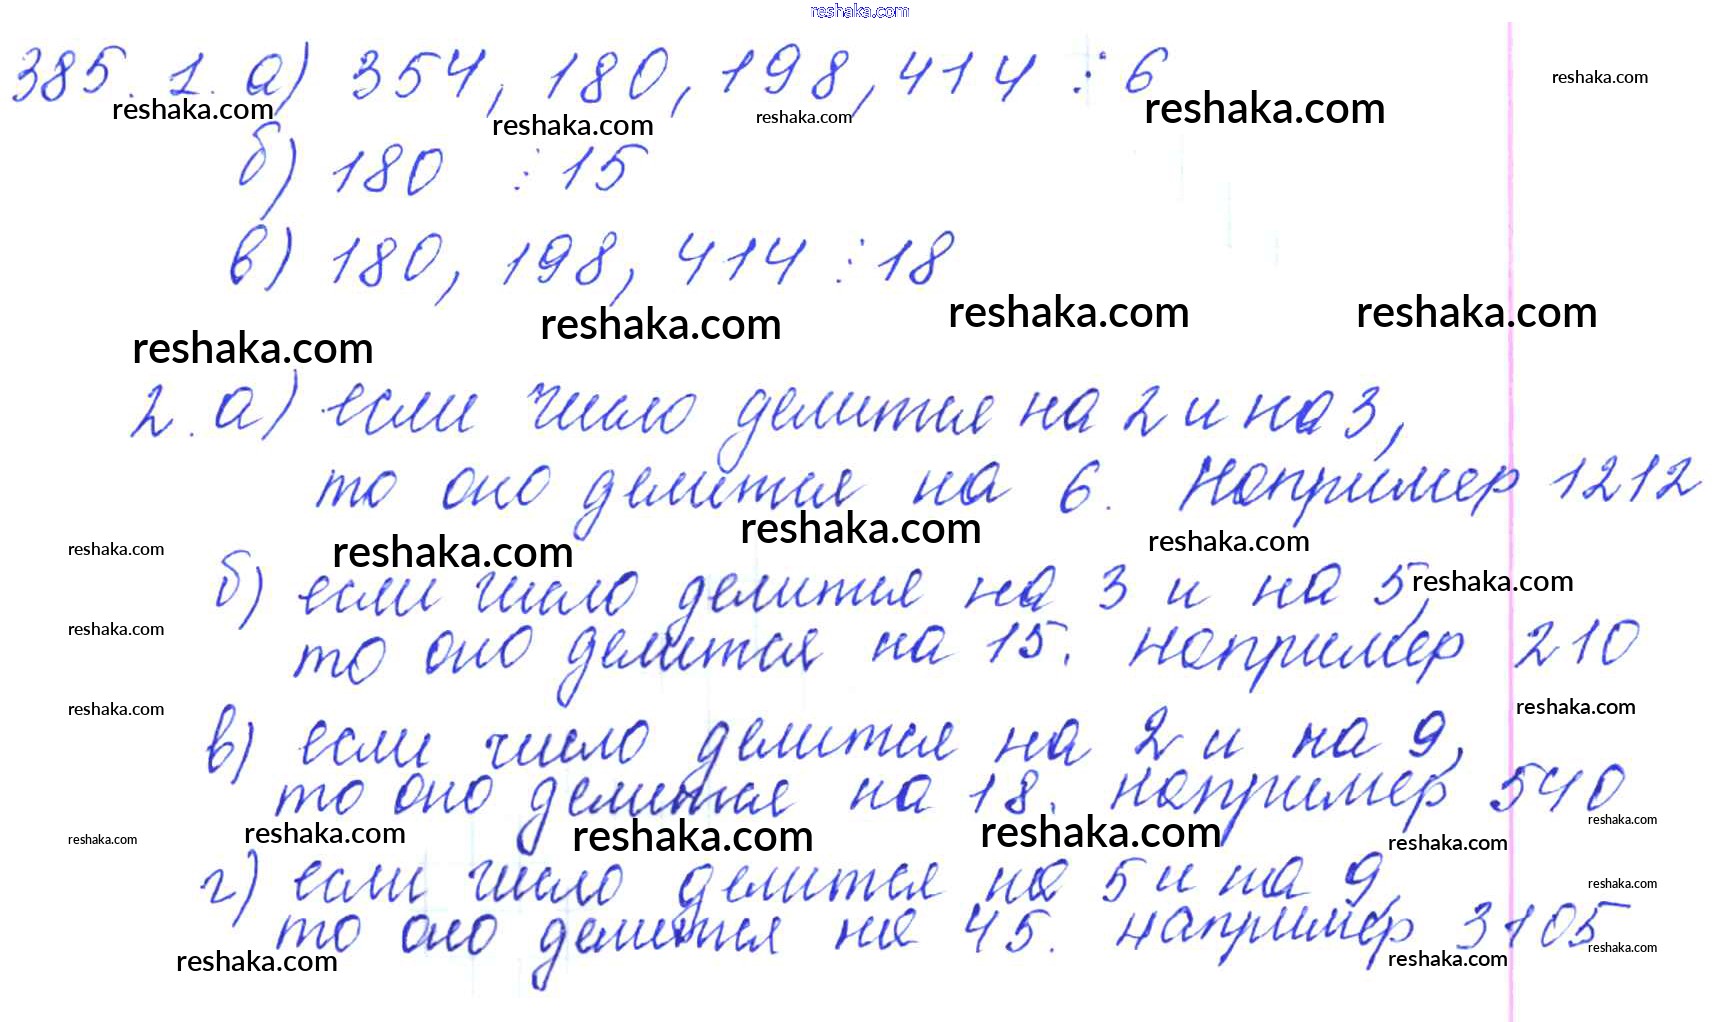 reshaka.com
385. 1. а) 354, 180, 198, 414 ⋮ 6
reshaka.com
reshaka.com
reshaka.com
reshaka.com
reshaka.com
б) 180 ⋮ 15
в) 180, 198, 414 ⋮ 18
reshaka.com
reshaka.com
reshaka.com
reshaka.com
2. а) если число делится на 2 и на 3,
то оно делится на 6. Например 1212
reshaka.com
reshaka.com
reshaka.com
reshaka.com
reshaka.com
б) если число делится на 3 и на 5,
reshaka.com
то оно делится на 15. Например 210
reshaka.com
reshaka.com
в) если число делится на 2 и на 9,
то оно делится на 18. Например 540
reshaka.com
reshaka.com
reshaka.com
reshaka.com
reshaka.com
reshaka.com
г) если число делится на 5 и на 9,
reshaka.com
то оно делится на 45. Например 3105
reshaka.com
reshaka.com
reshaka.com